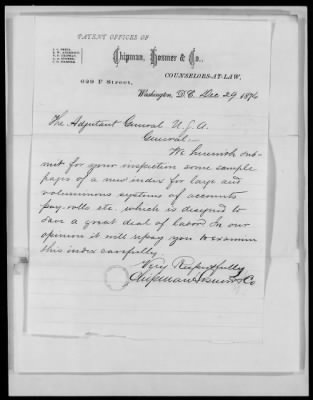 PATENT OFFICES OF
Chipman, Hosmer & Co.,
COUNSELORS-AT-LAW,
629 F Street,
Washington, D.C. Dec 29 1876
The Adjutant General U.S.A.
General—
We herewith sub-
mit for your inspection some sample
pages of a new index for large and
voluminous systems of accounts
pay-rolls etc, which is designed to
save a great deal of labor. In our
opinion it will repay you to examine
this index carefully.
Very Respectfully
Chipman Hosmer & Co